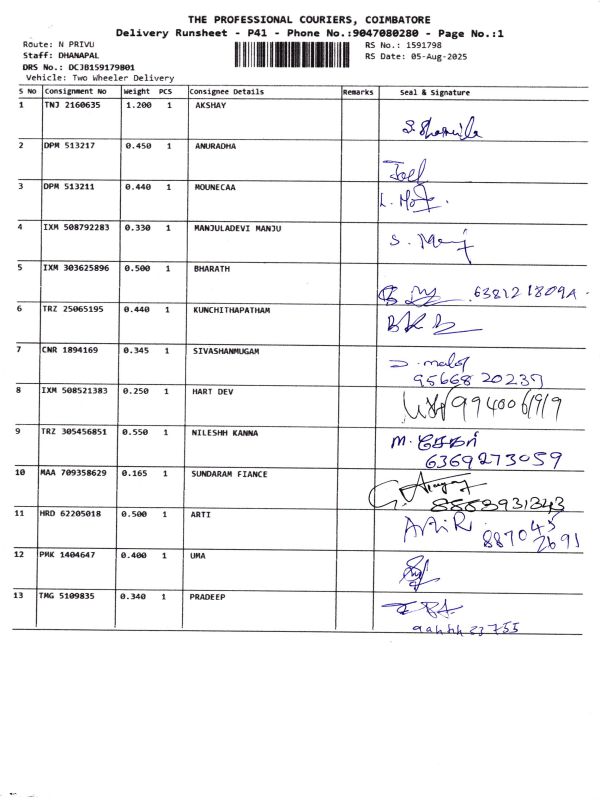 THE PROFESSIONAL COURIERS, COIMBATORE
Delivery Runsheet - P41 - Phone No.:9047080280 - Page No.:1
Route: N PRIVU
RS No.: 1591798
Staff: DHANAPAL
RS Date: 05-Aug-2025
DRS No.: DCJB159179801
Vehicle: Two Wheeler Delivery
S No Consignment No Weight PCS Consignee Details Remarks Seal & Signature
1 TNJ 2160635 1.200 1 AKSHAY
2 DPM 513217 0.450 1 ANURADHA
Joel
3 DPM 513211 0.440 1 MOUNECAA
4 IXM 508792283 0.330 1 MANJULADEVI MANJU
5 IXM 303625896 0.500 1 BHARATH
6 TRZ 25065195 0.440 1 KUNCHITHAPATHAM
7 CNR 1894169 0.345 1 SIVASHANMUGAM
95668 20237
8 IXM 508521383 0.250 1 HART DEV
9 TRZ 305456851 0.550 1 NILESHH KANNA
6369273059
10 MAA 709358629 0.165 1 SUNDARAM FIANCE
11 HRD 62205018 0.500 1 ARTI
887045
2691
12 PMK 1404647 0.400 1 UMA
13 TMG 5109835 0.340 1 PRADEEP